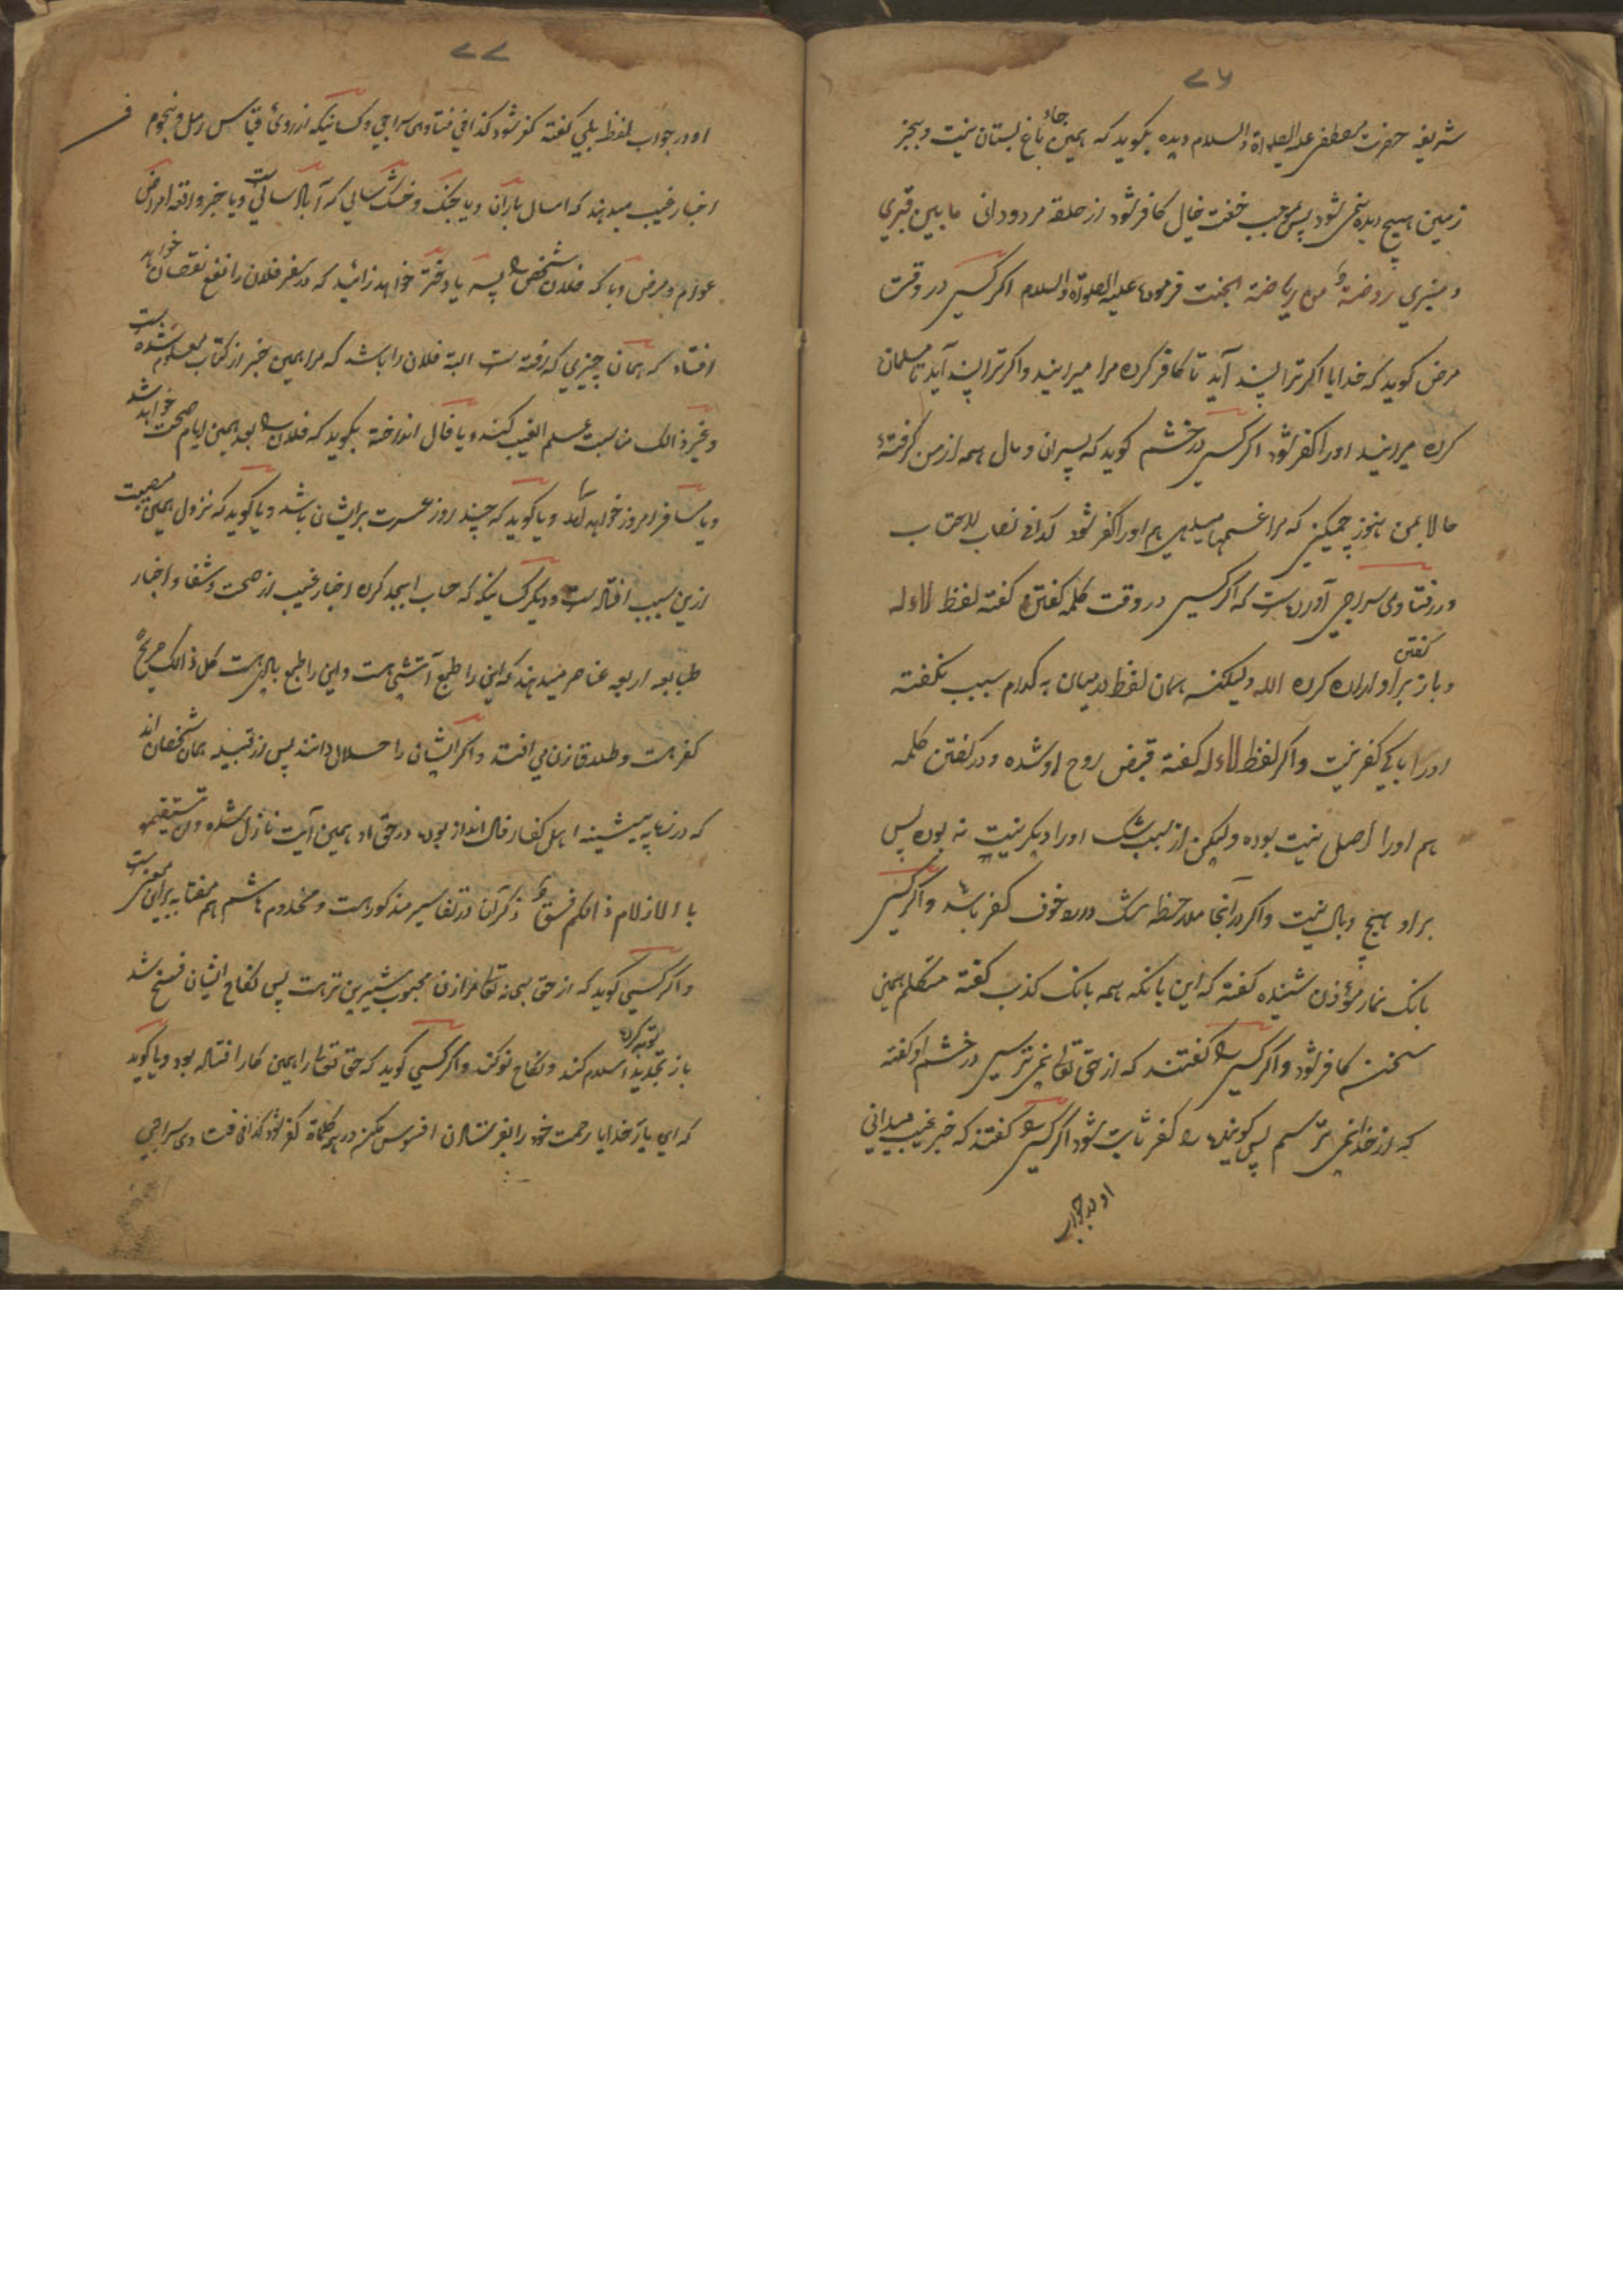 ٧٦
شریفه حضرت مصطفی علیه الصلواة والسلام دیده بکوید که همین جاء باغ بستان نیست وبجز
زمین هیچ دیده نمی شود پس بموجب خفت خیال کافر شود از حلقه مردودانی ما بین قبری
و منبری روضة من ریاضة الجنت فرموده علیه الصلوة والسلام اکر کسی در وقت
مرض کوید که خدایا اکر ترا پسند آید تا کافر کرده مرا میرانید واکر ترا پسند آید تا مسلمان
کرده میرانید اورا کفر شود اکر کسی در خشم کوید که پسران و مال همه از من کرفتۀ
حالا بمن هنوز چه میکنی که مرا غمها میدهی هم اورا کفر شود کذافی نصاب الاحتساب
و در فتاوی سراجی آورده است که اکر کسی در وقت کلمه کفتن کفته لفظ لا اله
و باز براو اراده کرده کفتن الله ولیکنه همان لفظ درمیان به کدام سبب نکفته
اورا باکی کفر نیست واکر لفظ لا اله کفته قبض روح او شده و در کفتن کلمه
هم اورا اصل نیت بوده ولیکن از سبب شک اورا دیکر نیت نه بوده پس
براو هیچ وبال نیست واکر در آنجا ملاحظه شک دارد خوف کفر باشد واکر کسی
بانک نماز مؤذن شنیده کفته که این بانکه همه بانک کذب کفته متکلم همین
سخنه کافر شود واکر کسی را کفتند که از حق تعالی نمی ترسی در خشم او کفته
که از خدا نمی ترسم پس کوینده را کفر ثابت شود اکر کسی را کفتند که خبر غیب میدانی
او در جواب
٧٧
او در جواب لفظ بلی کفته کفر شود کذا فی فتاوی سراجی وکسانیکه از روی قیاس رمل و نجوم
اخبار غیب میدهند که امسال باران ویا جنک وخشک سالی که آبلا سالی است ویا خبر واقعه امراض
عوارم و مرض وبا که فلان شخص را پسر یا دختر خواهد زائید که در سفر فلان را نفع نقصان خواهد
افتاد که همان چیزی که رفته است البته فلان را باشد که مرا همین خبر از کتاب معلوم شده است
وغیر ذالک مناسبت علم الغیب کنند ویا فال انداخته بکوید که فلان را بعد همین ایام صحت خواهد شد
ویا مسافر امروز خواهد آمد ویا کوید که چند روز عسرت برایشان باشد ویا کوید که نزول همین مصیبت
ازین سبب افتاده است و دیکر کسانیکه که حساب ابجد کرده اخبار غیب از صحت وشفاء واخبار
طبایع اربعه عناصر میدهند که این را طبع آتشی است واین را طبع بادی است کل ذالک صریح
کفر است وطلاق زن می افتد واکر ایشان را حلال دانند پس از قبیله همان شخصان اند
که در زمانه پیشینه اهل کفار فال انداز بوده در حق او همین آیت نازل شده وان تستقسموا
بالازلام ذالکم فسق ذکر آن در تفاسیر مذکور است ومخدوم هاشم هم مفتا به برای همین است
واکر کسی کوید که از حق سبحانه تعالی مرا زن محبوب شیرین تر است پس نکاح ایشان فسخ شد
باز توبه کرده تجدید اسلام کند ونکاح نو کند واکر کسی کوید که حق تعالی را همین کار افتاده بود ویا کوید
که ای بار خدایا رحمت خود را بغرنشاندن افسوس مکن در هر کلماة کفر شود کذا فی فتاوی سراجی